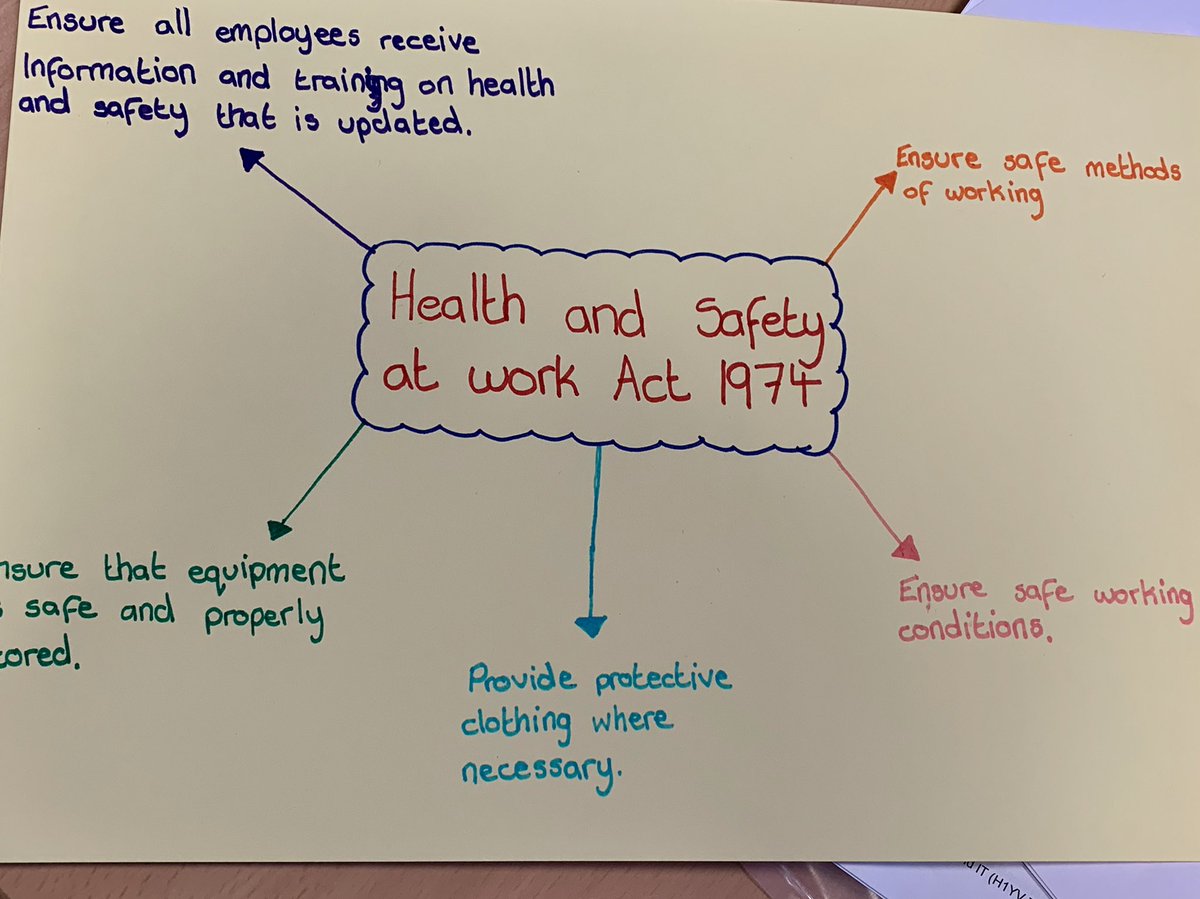 Ensure all employees receive
Information and training on health
and safety that is updated.
Ensure safe methods
of working
Health and Safety
at work Act 1974
nsure that equipment
s safe and properly
tored.
Provide protective
clothing where
necessary.
Ensure safe working
conditions.
IT (H1YV